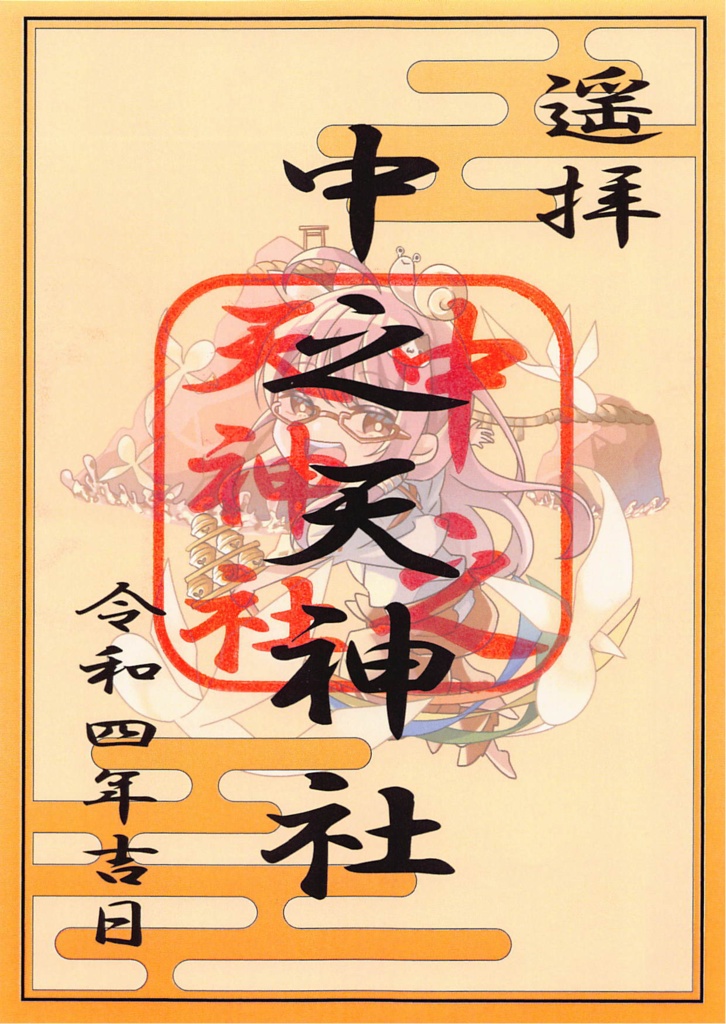 遥拝
中之天神社
中之
天神社
令和四年吉日